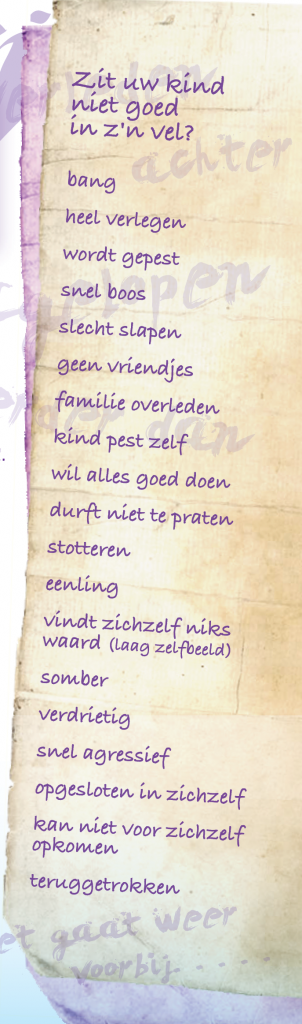 Zit uw kind
niet goed
in z'n vel?
achter
bang
heel verlegen
wordt gepest
snel boos
slecht slapen
geen vriendjes
familie overleden
kind pest zelf
dan
wil alles goed doen
durft niet te praten
stotteren
eenling
vindt zichzelf niks
waard (laag zelfbeeld)
somber
verdrietig
snel agressief
opgesloten in zichzelf
kan niet voor zichzelf
opkomen
teruggetrokken
gaat weer
voorbij . . . .